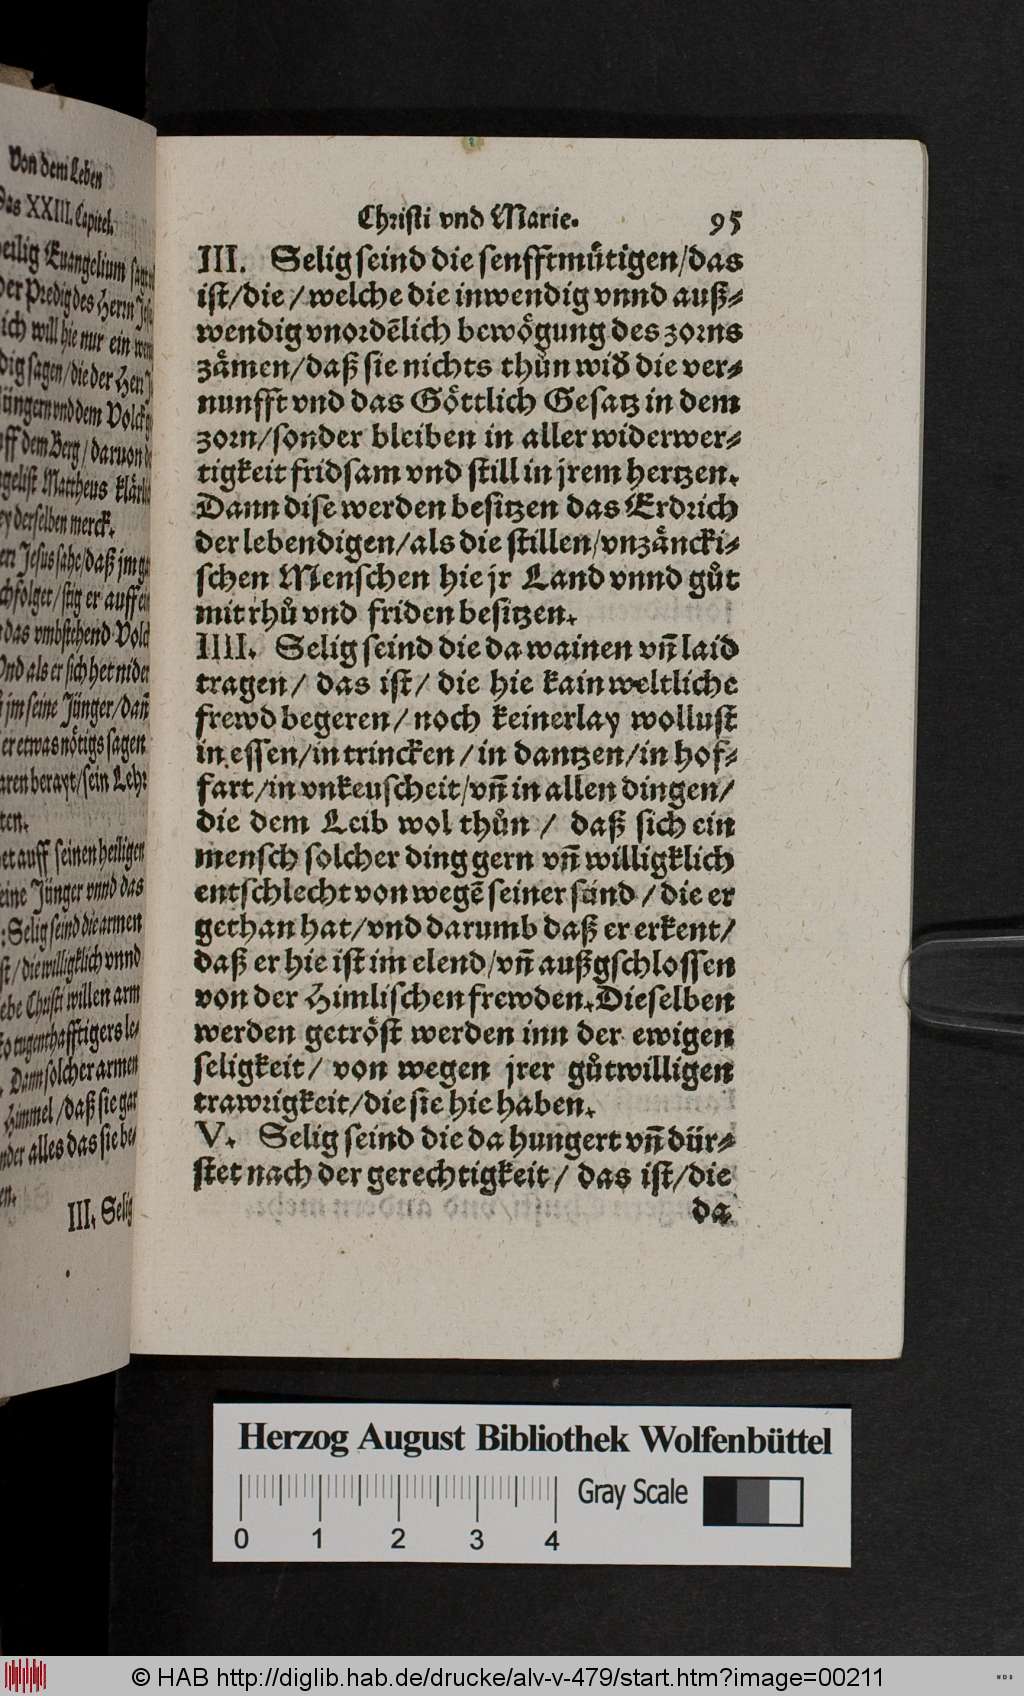 Von dem Leben
Das XXIII. Capitel.
heilig Euangelium sagt
der Predig des Herrn
ich will hie nur ein
dig sagen/die der Herr
Jüngern vnd dem Volck
auff dem Berg/daruon
gelist Mattheus
ey derselben merck.
Jesus sahe/daß jm
er auff
das vmbstehend Volck
Vnd als er sich het nider
jm seine Jünger/dañ
er etwas nötigs sagen
waren berayt/sein Lehr
ten.
et auff seinen heiligen
seine Jünger vnnd das
: Selig seind die armen
ist/die willigklich vnnd
liebe Christi willen arm
tugenthafftigers le-
Dann solcher armen
Himmel/daß sie gar
sonder alles das sie be-
en.
III. Selig
Christi vnd Marie. 95
III. Selig seind die senfftmütigen/das
ist/die/welche die inwendig vnnd auß-
wendig vnordēlich bewögung des zorns
zämen/daß sie nichts thůn wid' die ver-
nunfft vnd das Göttlich Gesatz in dem
zorn/sonder bleiben in aller widerwer-
tigkeit fridsam vnd still in jrem hertzen.
Dann dise werden besitzen das Erdrich
der lebendigen/als die stillen/vnzäncki-
schen Menschen hie jr Land vnnd gůt
mit rhů vnd friden besitzen.
IIII. Selig seind die da wainen vñ laid
tragen/ das ist/ die hie kain weltliche
frewd begeren/noch keinerlay wollust
in essen/in trincken/in dantzen/in hof-
fart/in vnkeuscheit/vñ in allen dingen/
die dem Leib wol thůn / daß sich ein
mensch solcher ding gern vñ willigklich
entschlecht von wegē seiner sünd/die er
gethan hat/vnd darumb daß er erkent/
daß er hie ist im elend/vñ außgschlossen
von der Himlischen frewden. Dieselben
werden getröst werden inn der ewigen
seligkeit/ von wegen jrer gůtwilligen
trawrigkeit/die sie hie haben.
V. Selig seind die da hungert vñ dür-
stet nach der gerechtigkeit/ das ist/die
da
Herzog August Bibliothek Wolfenbüttel
0 1 2 3 4
Gray Scale
© HAB http://diglib.hab.de/drucke/alv-v-479/start.htm?image=00211